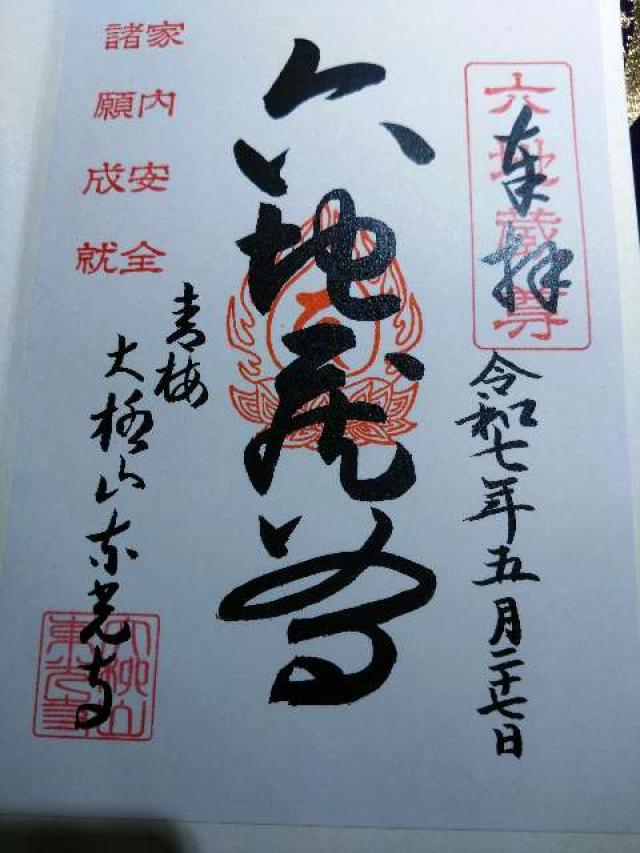 奉拝
六地蔵尊
令和七年五月二十七日
六地蔵尊
家内安全
諸願成就
青梅
大柳山東光寺
大柳山
東光寺